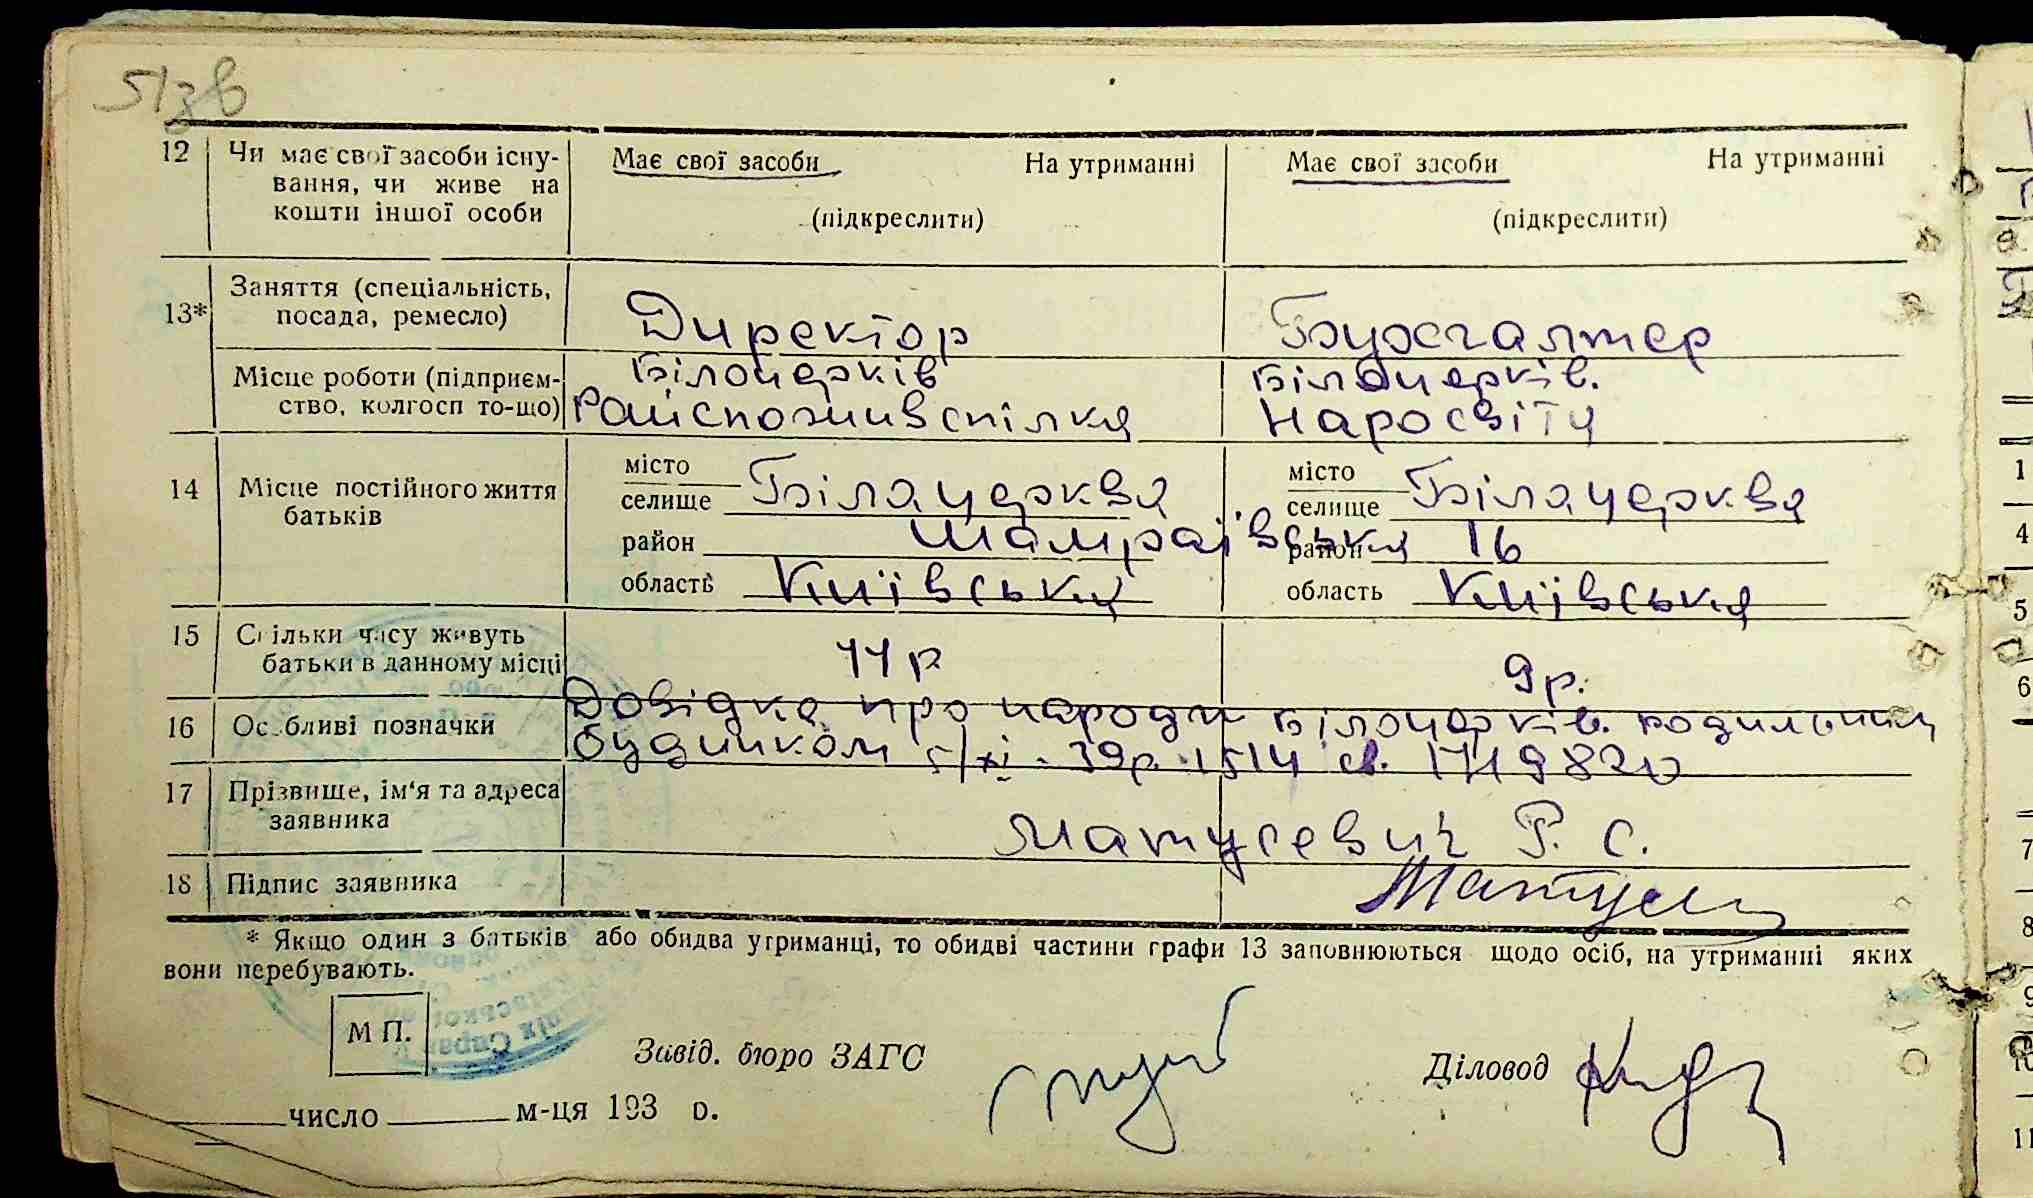 51зв
12 Чи має свої засоби існу- Має свої засоби На утриманні Має свої засоби На утриманні
вання, чи живе на
кошти іншої особи (підкреслити) (підкреслити)
13* Заняття (спеціальність,
посада, ремесло) Директор Бухгалтер
Місце роботи (підприєм- Білоцерків Білоцерків.
ство, колгосп то-що) Райспоживспілка Наросвіта
14 Місце постійного життя
батьків
місто місто
селище Біла церква селище Біла церква
район Шамраївська 16 район
область Київська область Київська
15 Скільки часу живуть
батьки в данному місці 11 р 9 р.
16 Особливі позначки Довідка про народж Білоцерків. родильним
будинком 5/XI - 39р. 1514 св. 1719820
17 Прізвище, ім'я та адреса
заявника Матусевич Р. С.
18 Підпис заявника
* Якщо один з батьків або обидва утриманці, то обидві частини графи 13 заповнюються щодо осіб, на утриманні яких
вони перебувають.
М П. Завід. бюро ЗАГС Діловод
число м-ця 193 р.